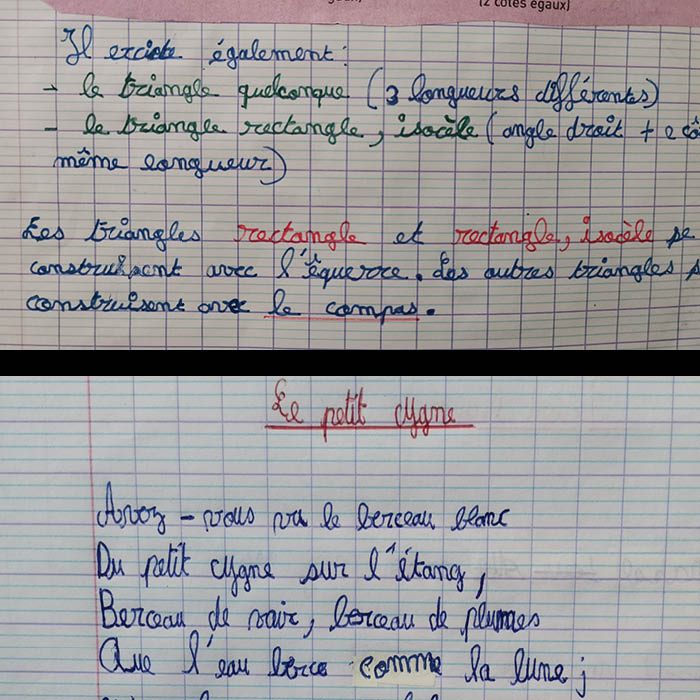 (2 côtés égaux)
Il existe également :
- le triangle quelconque (3 longueurs différentes)
- le triangle rectangle, isocèle (angle droit + 2 cô
même longueur)
Les triangles rectangle et rectangle, isocèle se
construisent avec l'équerre. Les autres triangles s
construisent avec le compas.
Le petit cygne
Avez-vous vu le berceau blanc
Du petit cygne sur l'étang,
Berceau de soie, berceau de plumes
Que l'eau berce comme la lune ;